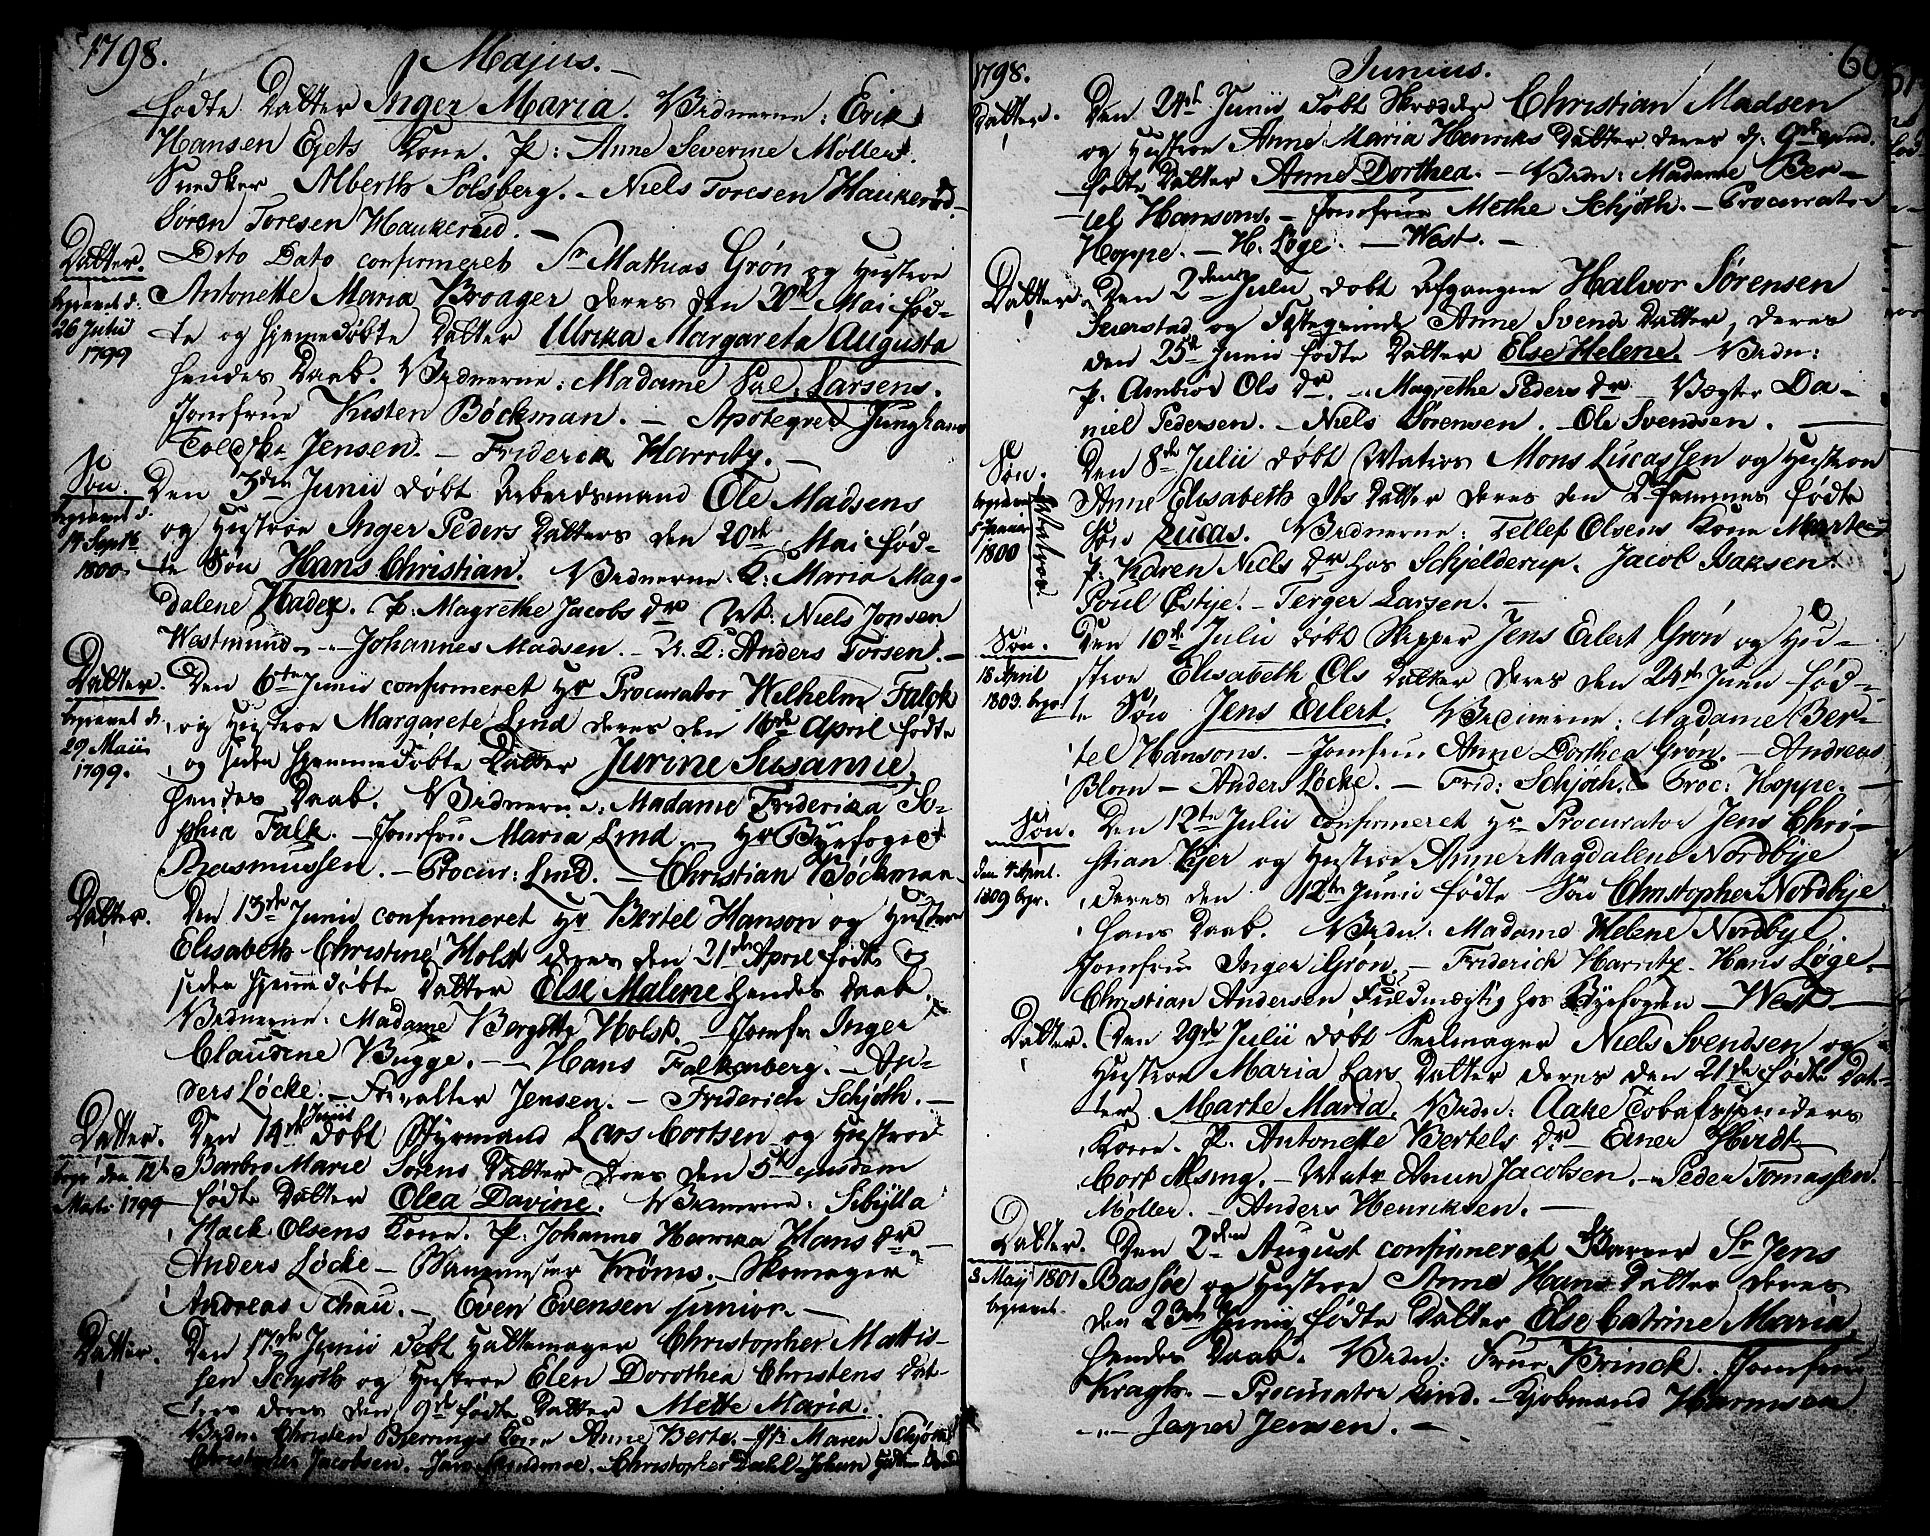 1798. Majus.
fødte Datter Inger Maria. Vidnerne: Erik
Hansen Eiets Kone. P: Anne Severine Møllers.
Snedker Alberth Solsberg. – Niels Toresen Haukerød.
Søren Toresen Haukerød. –
Datter.
begravet d:
26 Julii
1799
Dito Dato confirmeret Sr Mathias Grøn og Hustroe
Antonette Maria Broager deres den 20de Mai fød-
te og hjemmedøbte Datter Ulrika Margareta Augusta
hendes Daab. Vidnerne: Madame Sal. Larsens.
Jomfrue Kisten Böckman. – Apoteqer Junghans
Toldsk. Jensen. – Friderik Harritz. –
Søn.
begravet d.
14 Septb
1800
Den 3die Junii døbt Arbeidsmand Ole Madsens
og Hustroe Inger Peders Datters den 20de Mai fød-
te Søn Hans Christian. Vidnerne. K: Maria Mag-
dalene Hadex. P: Magrethe Jacobs dr Mt: Niels Jonsen
Westmund – Johannes Madsen. – U. K: Anders Torsen. –
Datter.
begravet d:
29 Maii
1799.
Den 6te Junii confirmeret Hr Procurator Wilhelm Falck
og Hustroe Margarete Lind deres den 16de April fødte
og siden hjemmedøbte Datter Jurine Susanne,
hendes Daab. Vidnerne: Madame Friderika So-
phia Falk. – Jomfru Maria Lind. – Hr Byefoged
Rasmussen. – Procur: Lind. – Christian Böckman.
Datter.
Den 13de Junii confirmeret Hr Bertel Hanson og Hustroe
Elisabeth Christine Holst deres den 21de April fødte og
siden hjemmedøbte Datter Else Malene hendes Daab.
Vidnerne: Madame Bergitte Holst. – Jomfr. Inger
Claudine Bugge. – Hans Falkenberg. – An-
ders Løcke. – Forvalter Jensen. – Friderich Schjøth. –
Datter.
begr. den 12te
Mai 1799
Den 14de Junii døbt Styrmand Lars Cortsen og Hustroe
Barbro Marie Sorens Datter deres den 5te ejusdem
fødte Datter Olea Davine. Vidnerne: Sibylla
Hack Olsens Kone. P. Johanna Henrika Hans dr –
Anders Løcke – Krøms. – Skomager
Andreas Schau. – Even Evensen junior. –
Datter.
Den 17de Junii døbt Hattemager Christopher Mattis-
sen Schjøth og Hustroe Elen Dorothea Christens Dat-
ters deres den 9de fødte Datter Mette Maria.
Vidn: Christen Bierrings Kone Anne Berte. – Maren Schjøth
Christopher Jacobsen. – Christopher Dahl – Johan
1798. Junius. 60
Datter.
Den 24de Junii døbt Skrædder Christian Madsen
og Hustroe Anne Maria Henriks Datter deres d: 9de ejusd.
fødte Datter Anne Dorthea. – Vidn: Madame Ber-
tel Hansons. – Jomfrue Methe Schjøth. – Procurator
Hoppe. – H. Løge. – West. –
Datter.
Den 2den Julii døbt Afgangne Halvor Sørensen
Seierstad og Festeqvinde Anne Svends Datter, deres
den 25de Junii fødte Datter Else Helene. Vidn:
P. Ambior Ols dr. – Magrethe Peders dr – Vægter Da-
niel Pedersen. – Niels Sørensen. – Ole Svendsen. –
Søn.
begravet
5 Januar
1800
Den 8de Julii døbt Matros Mons Lucassen og Hustroe
Anne Elisabeth Ibs Datter deres den 2de hujus fødte
Søn Lucas. Vidnerne: Tellef Olsens Kone Marte
P. Karen Niels dr hos Schjelderup. Jacob Isaksen.
Poul Østbye. – Terger Larsen. –
Søn.
18 April
1803. begr.
Den 10de Julii døbt Skipper Jens Eilert Grøn og Hu-
stroe Elisabeth Ols Datter deres den 24de Junii fød-
te Søn Jens Eilert. Vidnerne: Madame Ber-
tel Hansons. – Jomfrue Anne Dorthea Grøn. – Andreas
Blom – Anders Løcke. – Frid: Schjøth. – Proc: Hoppe. –
Søn.
den 4 April.
1809 begr.
Den 12te Julii confirmeret Hr Procurator Jens Chri-
stian Kjer og Hustroe Anne Magdalene Nordbye
deres den 12te Junii fødte Søn Christopher Nordbye
hans Daab. Vidn: Madame Helene Nordbye.
Jomfrue Inger Grøn. – Friderich Harritz. Hans Løge. –
Christian Andersen Fuldmægtig hos Byefogden – West. –
Datter.
Den 29de Julii døbt Seilmager Niels Svendsen og
Hustroe Maria Lars Datter deres den 21de fødte Dat-
ter Marte Maria. Vidn: Aake Tobakspinders
Kone. P. Antonette Bertels dr – Einer Hvidt
Cort Alsing. – Matr. Anun Jacobsen. – Peder Tomassen
Møller. – Anders Henriksen. –
Datter.
3 Maij 1801
begravet.
Den 2den August confirmeret Sr Jens
Bassøe og Hustroe Anne Hans Datter deres
den 23de Junii fødte Datter Else Catrine Maria
hendes Daab. Vidn: Frue Brinck. Jomfrue
Kragh. – Procurator Lind. – Kjøbmand Harmsen
– Jesper Jensen. –